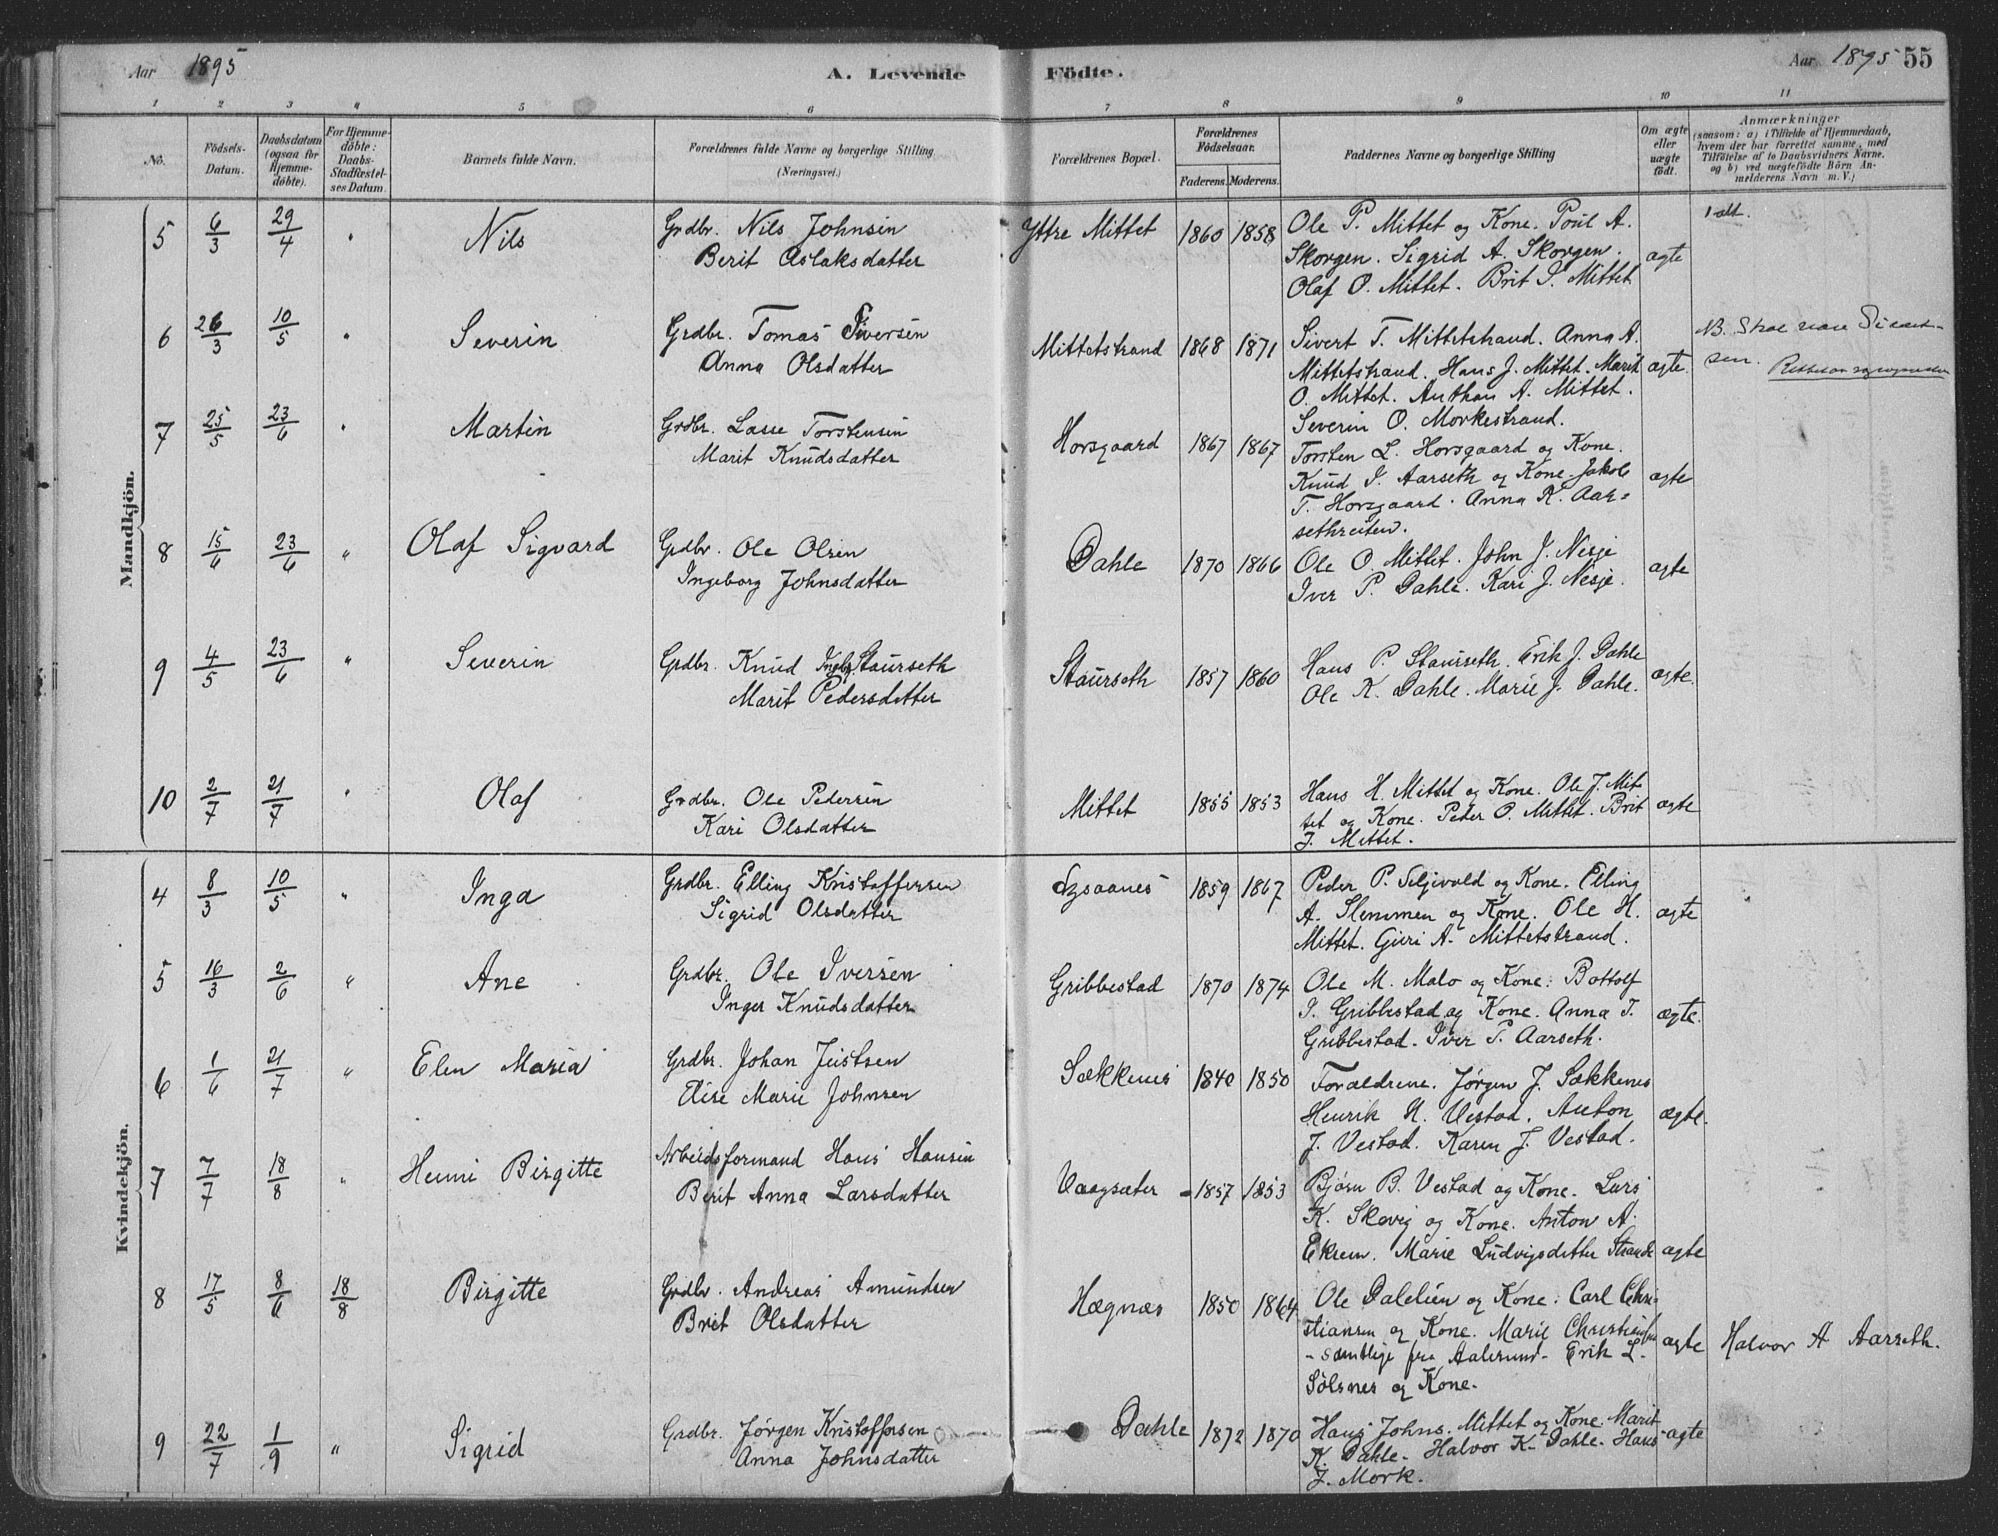 Aar 1895
A. Levende Födte.
Aar 1895 55
1 2 3 4 5 6 7 8 9 10 11
No.
Födsels-
Datum.
Daabsdatum
(ogsaa for
Hjemme-
döbte).
For Hjemme-
döbte:
Daabs-
Stadfæstel-
ses Datum.
Barnets fulde Navn.
Forældrenes fulde Navne og borgerlige Stilling
(Næringsvei.)
Forældrenes Bopæl.
Forældrenes
Födselsaar.
Faderens. Moderens.
Faddernes Navne og borgerlige Stilling
Om ægte
eller
uægte
födt.
Anmærkninger
(saasom: a) i Tilfælde af Hjemmedaab,
hvem der har forrettet samme, med
Tilföielse af to Daabsvidners Navne.
og b) ved uægtefödte Börn An-
melderens Navn m. V.)
Mandkjön.
5 6/3 29/4 " Nils
Grdbr. Nils Johnsen
Berit Aslaksdatter
Ytre Mittet 1860 1858
Ole P. Mittet og Kone. Poul A.
Skorgen. Sigrid A. Skorgen.
Olaf O. Mittet. Brit I. Mittet
ægte
1 alt.
6 26/3 10/5 " Severin
Grdbr. Tomas Siversen
Anna Olsdatter
Mittetstrand 1868 1871
Sivert T. Mittetstrand. Anna A.
Mittetstrand. Hans J. Mittet. Marit
O. Mittet. Anthon A. Mittet.
Severin O. Morkestrand.
ægte.
NB. Skal være
sen.
7 25/5 23/6 " Martin
Grdbr. Lasse Torstensen
Marit Knudsdatter
Horsgaard 1867 1867
Torsten L. Horsgaard og Kone.
Knud I. Aarseth og Kone. Jakob
T. Horsgaard. Anna K. Aar-
sethreiten.
ægte
8 15/6 23/6 " Olaf Sigvard
Grdbr. Ole Olsen
Ingeborg Johnsdatter
Dahle 1870 1866
Ole O. Mittet. John J. Nesje
Iver P. Dahle. Kari J. Nesje.
ægte
9 4/5 23/6 " Severin
Grdbr. Knud Ingbr. Staurseth
Marit Pedersdatter
Staurseth 1857 1860
Hans P. Staurseth. Erik J. Dahle
Ole K. Dahle. Marie J. Dahle.
ægte.
10 2/7 21/7 " Olaf
Grdbr. Ole Pedersen
Kari Olsdatter
Mittet 1855 1853
Hans H. Mittet og Kone. Ole J. Mit-
tet og Kone. Peder O. Mittet. Brit
J. Mittet.
ægte
Kvindekjön.
4 8/3 10/5 " Inga
Grdbr. Elling Kristoffersen
Sigrid Olsdatter
1859 1867
Peder P. Seljevold og Kone. Elling
A. Slemmen og Kone. Ole H.
Mittet. Guri A. Mittetstrand.
ægte
5 16/3 2/6 " Ane
Grdbr. Ole Iversen
Inger Knudsdatter
Gribbestad 1870 1874
Ole M. Malo og Kone. Bottolf
I. Gribbestad og Kone. Anna I.
Gribbestad. Iver P. Aarseth.
ægte.
6 1/6 21/7 " Elen Maria
Grdbr. Johan Justsen
Elise Marie Johnsen
Sækkenes 1840 1850
Forældrene. Jørgen J. Sækkenes
Henrik N. Vestad. Anton
J. Vestad. Karen J. Vestad.
ægte.
7 7/7 18/8 " Henni Birgitte
Arbeidsformand Hans Hansen
Berit Anna Larsdatter
Vaagsæter 1857 1853
Bjørn B. Vestad og Kone. Lars
K. Skevig og Kone. Anton A.
Ekrem. Marie Ludvigsdatter Strande
ægte
8 17/5 8/6 18/8 Birgitte
Grdbr. Andreas Amundsen
Brit Olsdatter
Hægnæs 1850 1864
Ole Dalelien og Kone. Carl Chri-
stiansen og Kone. Marie Christiansen
- samtlige fra Aalesund - Erik L.
Sølsnes og Kone.
ægte
Halvor A Aarseth.
9 22/7 1/9 " Sigrid
Grdbr. Jørgen Kristoffersen
Anna Johnsdatter
Dahle 1872 1870
Hans Johns. Mittet og Kone. Marit
K. Dahle. Halvor K. Dahle. Hans
J. Mork.
ægte